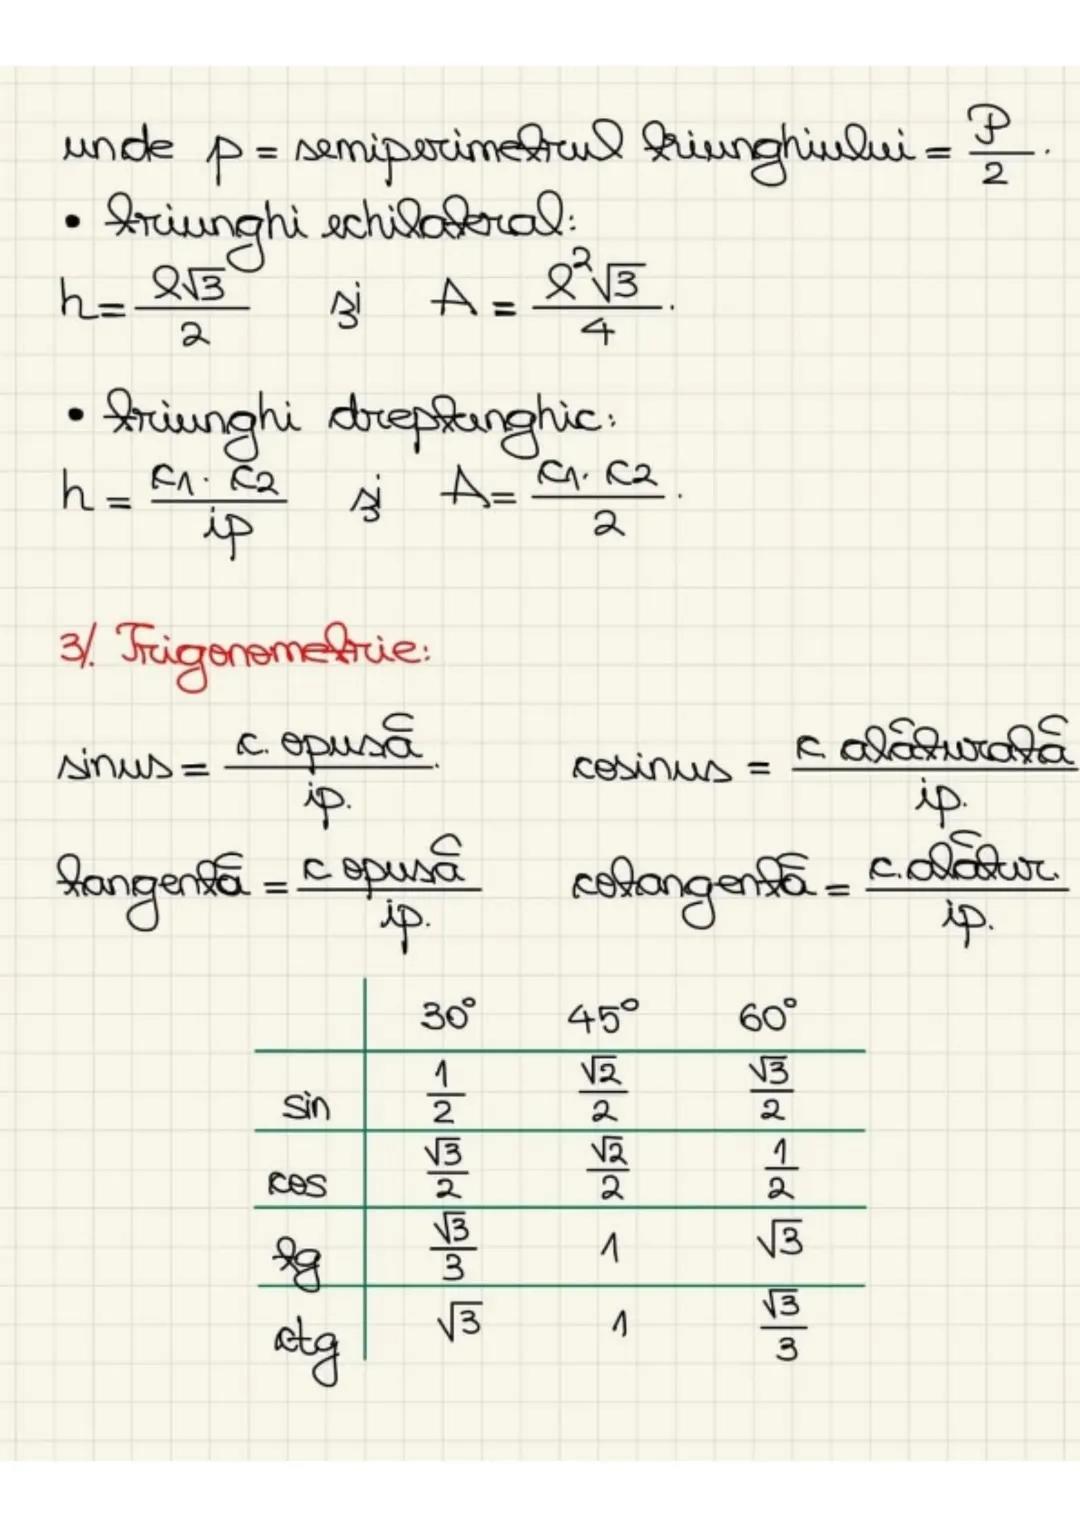 unde p = semiperimetrul triunghiului = P/2.
• triunghi echilateral:
h = l√3/2 și A = l²√3/4.
• triunghi dreptunghic:
h = c1·c2/ip și A = c1·c2/2.
3/. Trigonometrie:
sinus = c. opusă/ip. cosinus = c alăturată/ip.
tangentă = c opusă/ip. cotangentă = c. alătur./ip.
30° 45° 60°
sin 1/2 √2/2 √3/2
cos √3/2 √2/2 1/2
tg √3/3 1 √3
ctg √3 1 √3/3